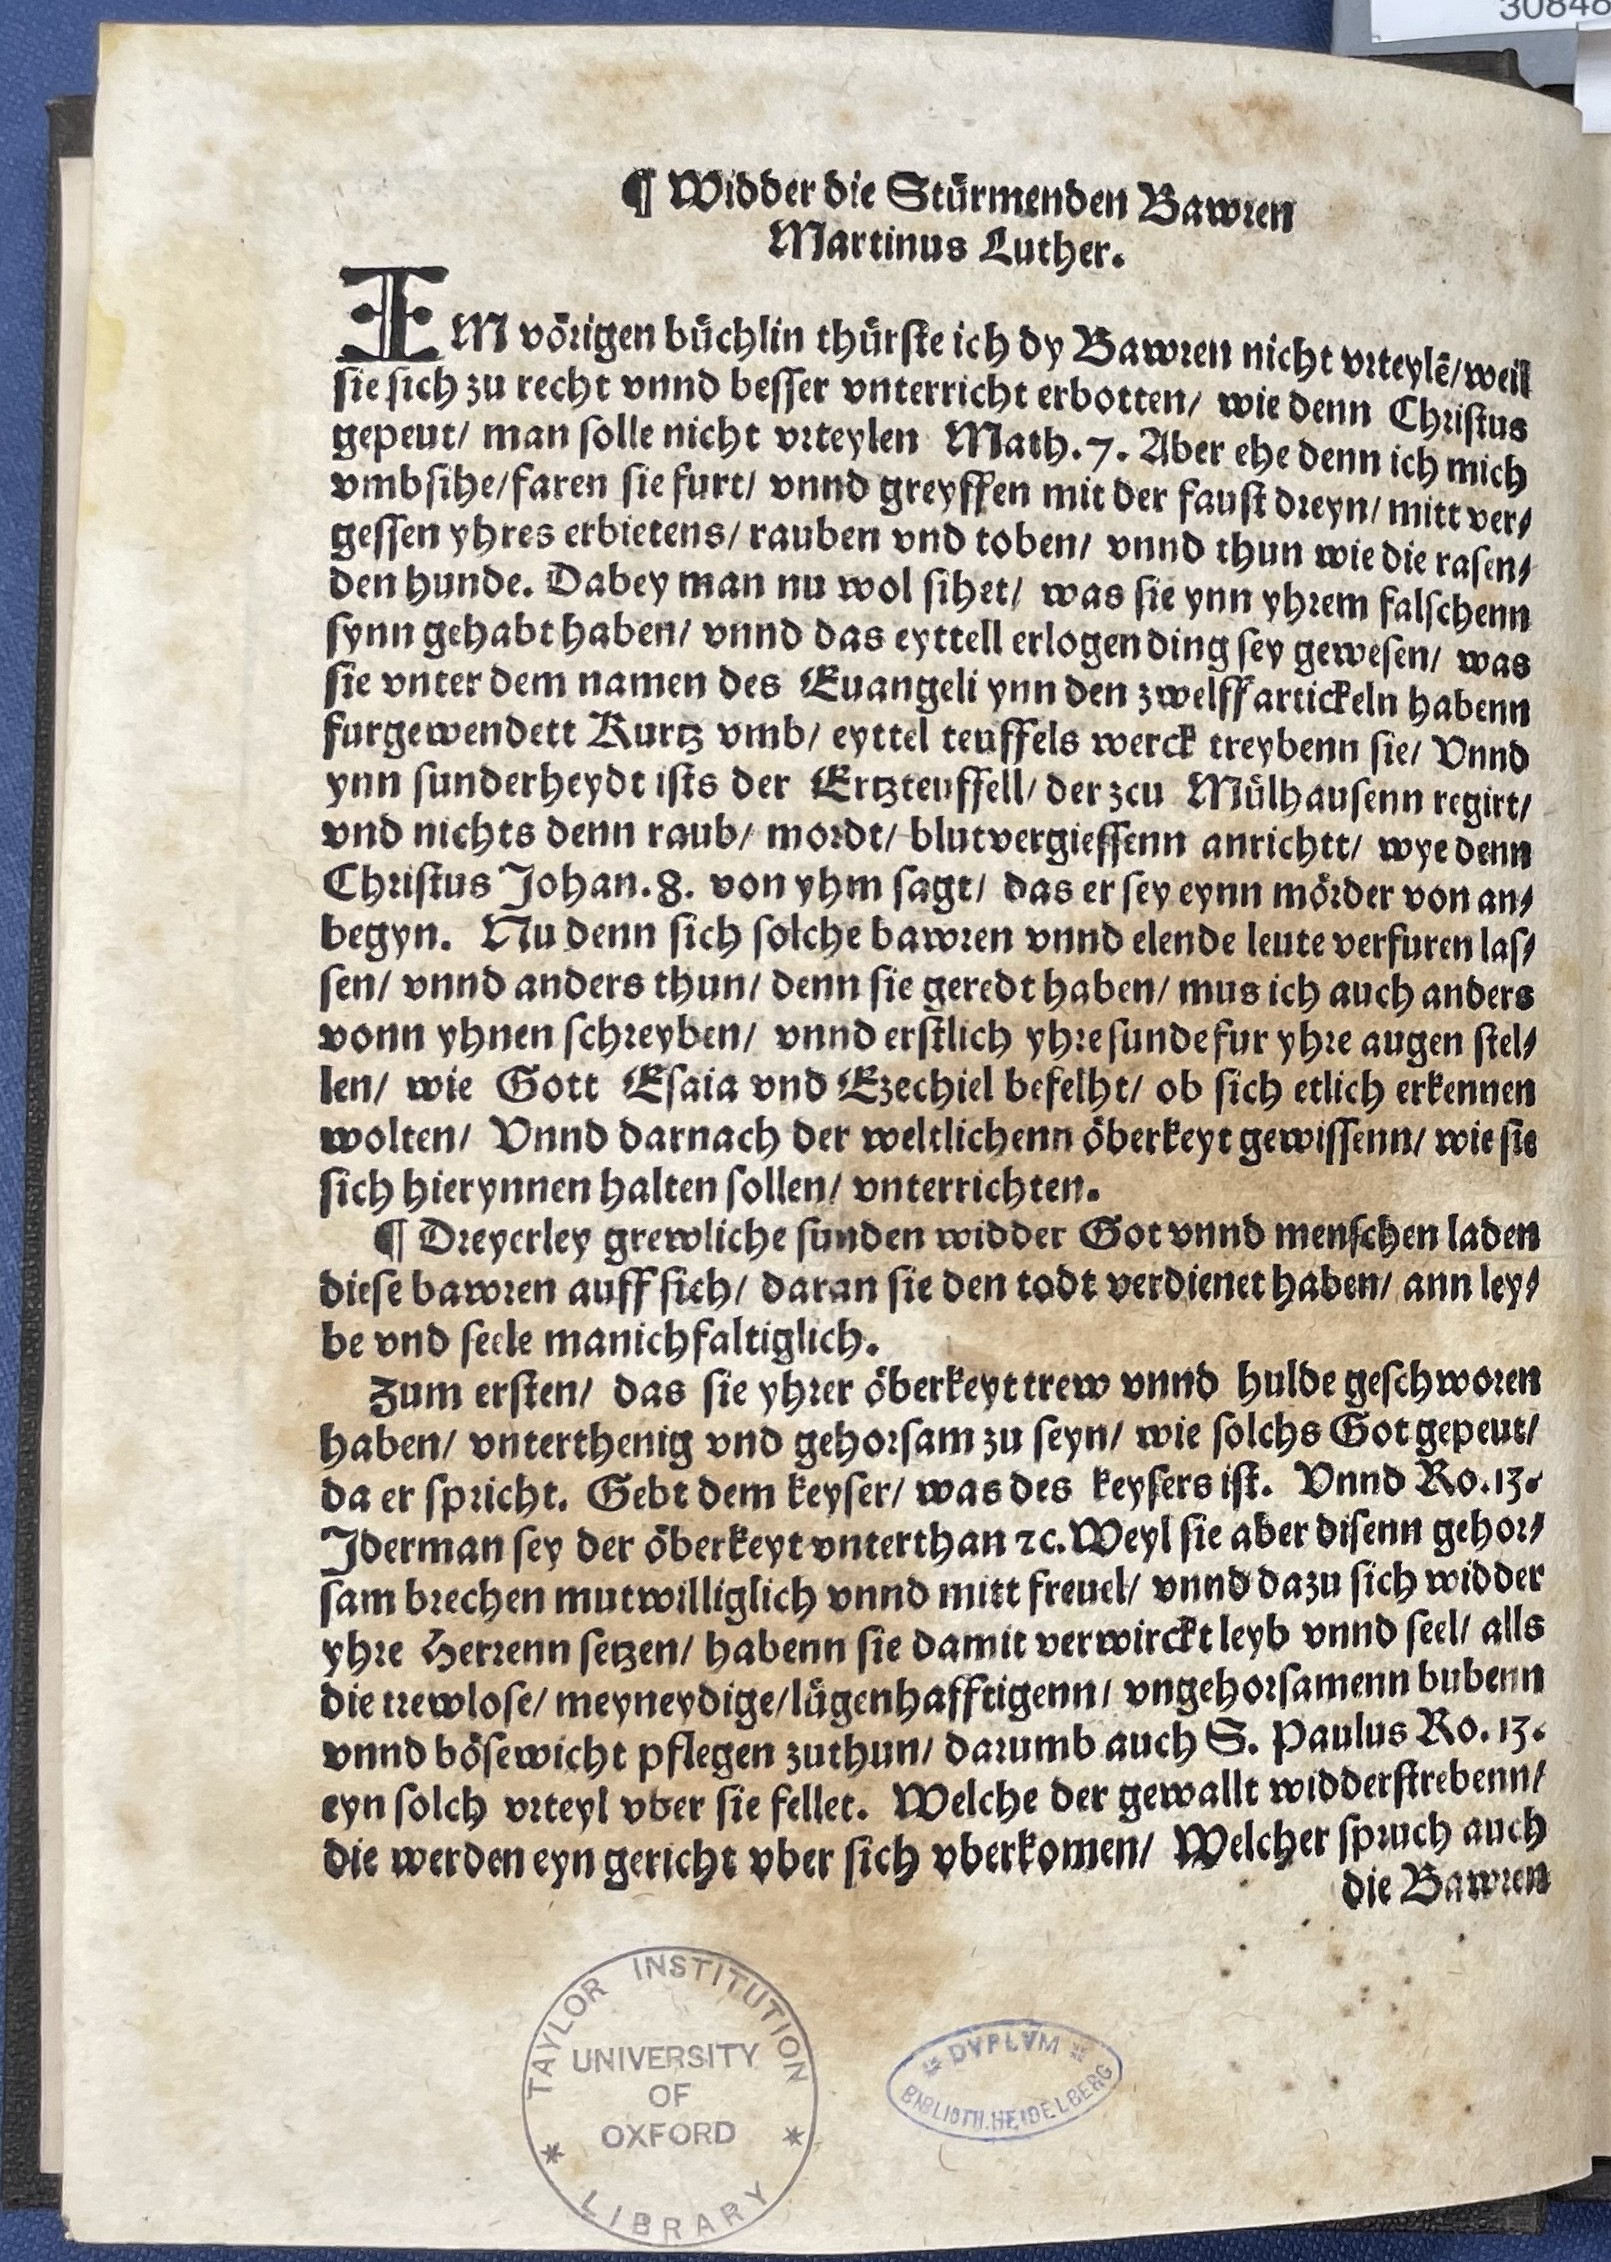 30848
¶ Widder die Stürmenden Bawren
Martinus Luther.
IM vörigen büchlin thürste ich dy Bawren nicht vrteylē/weil
sie sich zu recht vnnd besser vnterricht erbotten/ wie denn Christus
gepeut/ man solle nicht vrteylen Math.7. Aber ehe denn ich mich
vmbsihe/faren sie furt/ vnnd greyffen mit der faust dreyn/ mitt ver⸗
gessen yhres erbietens/ rauben vnd toben/ vnnd thun wie die rasen⸗
den hunde. Dabey man nu wol sihet/ was sie ynn yhrem falschenn
synn gehabt haben/ vnnd das eyttell erlogen ding sey gewesen/ was
sie vnter dem namen des Euangeli ynn den zwelff artickeln habenn
furgewendett Kurtz vmb/ eyttel teuffels werck treybenn sie/ Vnnd
ynn sunderheydt ists der Ertzteuffell/ der zcu Mülhausenn regirt/
vnd nichts denn raub/ mordt/ blutvergiessenn anrichtt/ wye denn
Christus Johan.8. von yhm sagt/ das er sey eynn mörder von an⸗
begyn. Nu denn sich solche bawren vnnd elende leute verfuren las⸗
sen/ vnnd anders thun/ denn sie geredt haben/ mus ich auch anders
vonn yhnen schreyben/ vnnd erstlich yhre sunde fur yhre augen stel⸗
len/ wie Gott Esaia vnd Ezechiel befelht/ ob sich etlich erkennen
wolten/ Vnnd darnach der weltlichenn öberkeyt gewissenn/ wie sie
sich hierynnen halten sollen/ vnterrichten.
¶ Dreyerley grewliche sunden widder Got vnnd menschen laden
diese bawren auff sich/ daran sie den todt verdienet haben/ ann ley⸗
be vnd seele manichfaltiglich.
Zum ersten/ das sie yhrer öberkeyt trew vnnd hulde geschworen
haben/ vnterthenig vnd gehorsam zu seyn/ wie solchs Got gepeut/
da er spricht. Gebt dem keyser/ was des keysers ist. Vnnd Ro.13.
Jderman sey der öberkeyt vnterthan ⁊c. Weyl sie aber disenn gehor⸗
sam brechen mutwilliglich vnnd mitt freuel/ vnnd dazu sich widder
yhre Herrenn setzen/ habenn sie damit verwirckt leyb vnnd seel/ alls
die trewlose/ meyneydige/lügenhafftigenn/ vngehorsamenn bubenn
vnnd bösewicht pflegen zuthun/ darumb auch S. Paulus Ro.13.
eyn solch vrteyl vber sie fellet. Welche der gewallt widderstrebenn/
die werden eyn gericht vber sich vberkomen/ Welcher spruch auch
die Bawren
TAYLOR INSTITUTION
UNIVERSITY
OF
OXFORD
* LIBRARY *
* DVPLVM *
BIBLIOTH. HEIDELBERG